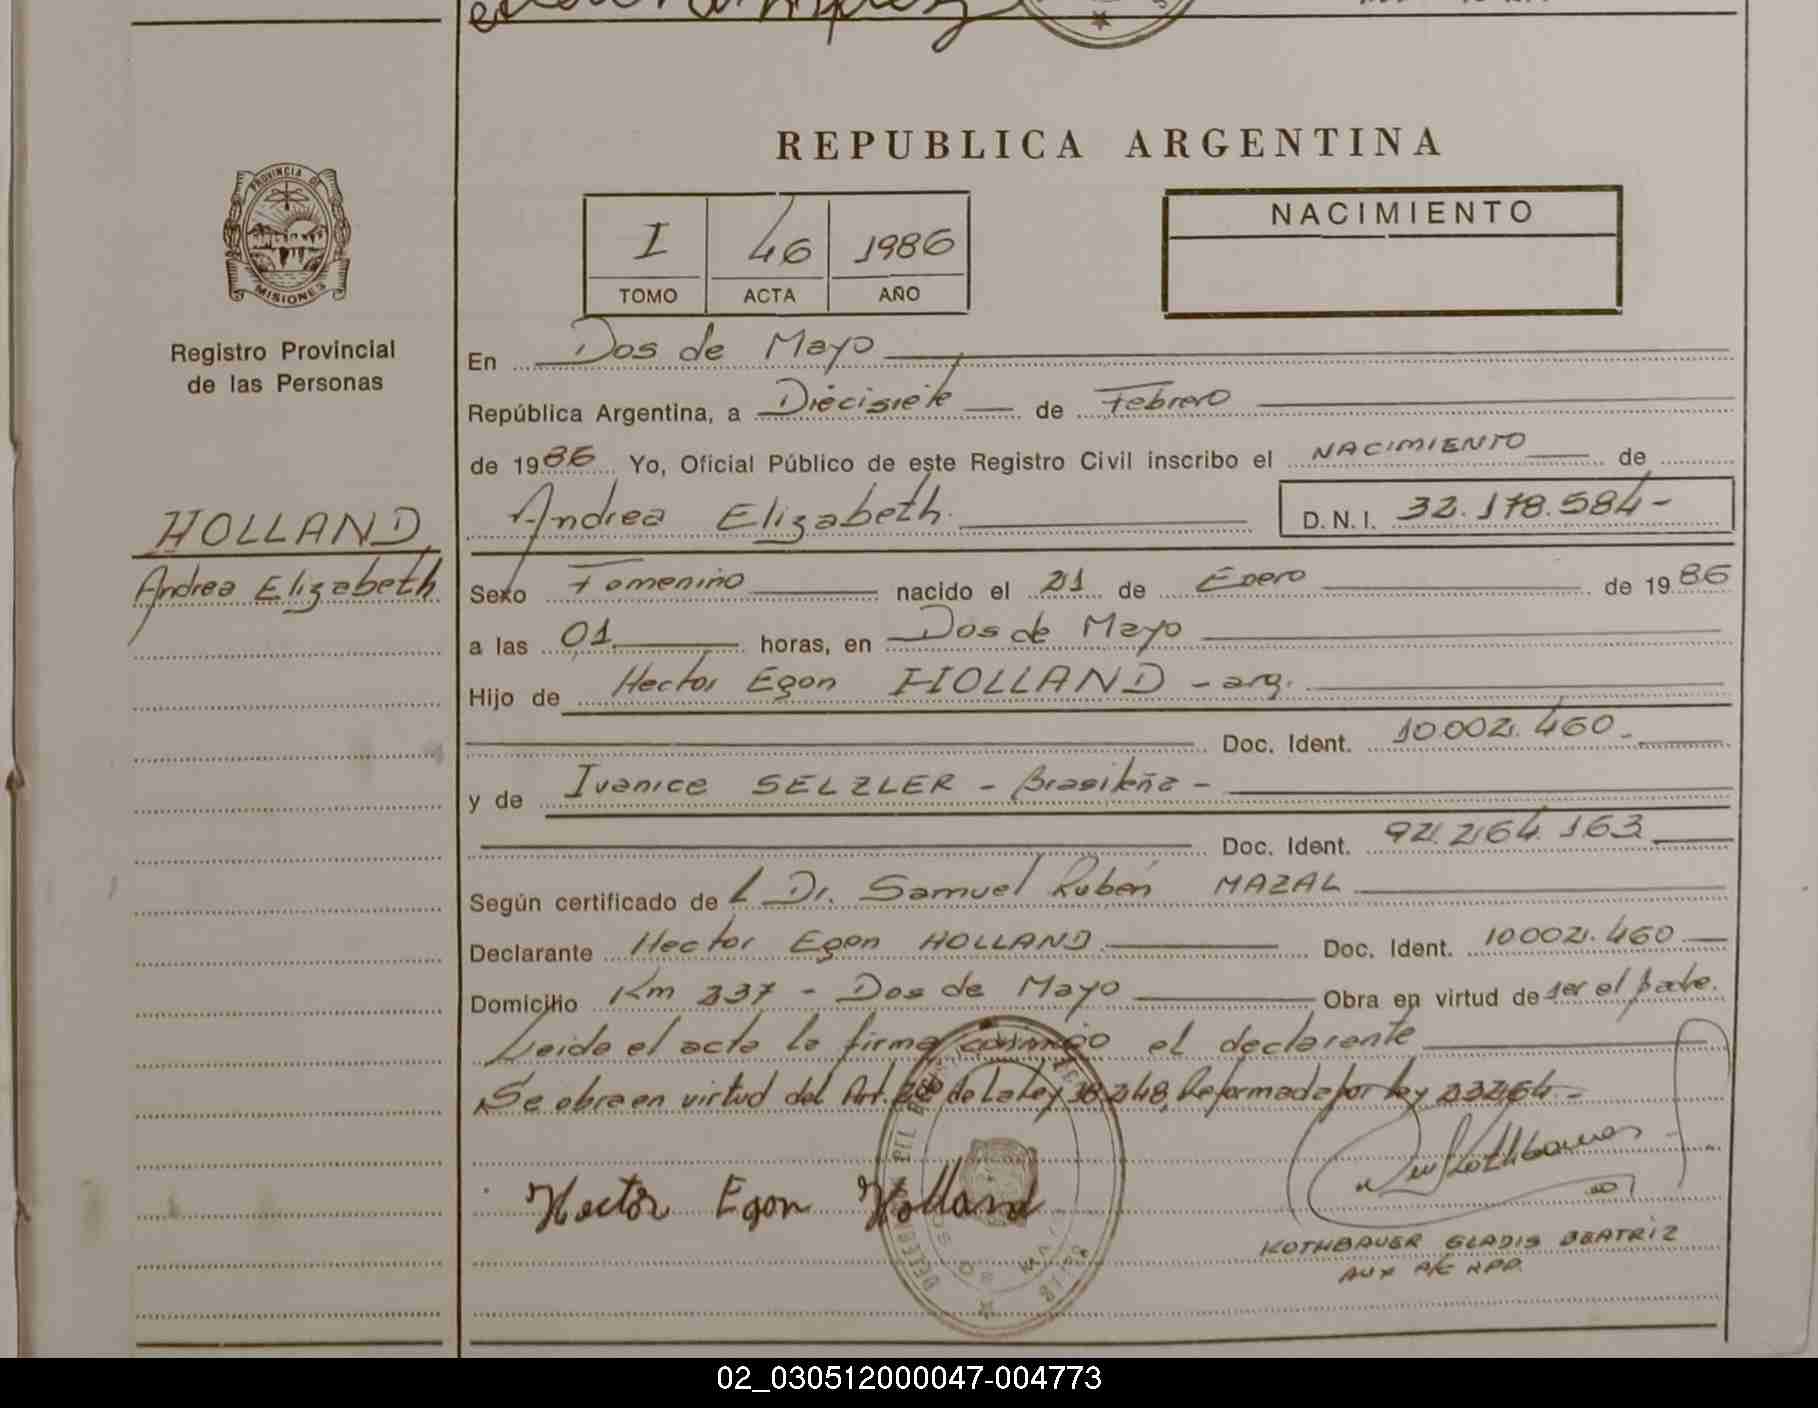 PROVINCIA DE
MISIONES
Registro Provincial
de las Personas
HOLLAND
Andrea Elizabeth
REPUBLICA ARGENTINA
I 46 1986
TOMO ACTA AÑO
NACIMIENTO
En Dos de Mayo
República Argentina, a Diecisiete de Febrero
de 1986 Yo, Oficial Público de este Registro Civil inscribo el NACIMIENTO de
Andrea Elizabeth D.N.I. 32.178.584-
Sexo Femenino nacido el 21 de Enero de 1986
a las 01 horas, en Dos de Mayo
Hijo de Hector Egon HOLLAND - arg.
Doc. Ident. 10.002.460.
y de Ivanice SELZLER - Brasileña -
Doc. Ident. 92.264.163
Según certificado de l Dr. Samuel Rubén MAZAL
Declarante Hector Egon HOLLAND Doc. Ident. 10.002.460
Domicilio Km 237 - Dos de Mayo Obra en virtud de ser el padre.
Leida el acta la firma conmigo el declarante
Se obra en virtud del Art. de la Ley 18.248, Reformada por Ley 23264.-
Hector Egon Holland
KOTHBAUER GLADIS BEATRIZ
AUX A/C RPP.
02_030512000047-004773